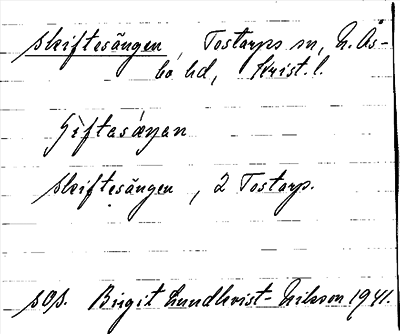 Skiftesängen, Tostarps sn, N. Ås-
bo hd, Krist. l.
Skiftesängen, 2 Tostarp.
sOp. Birgit Lundkvist-Nilsson 1941.